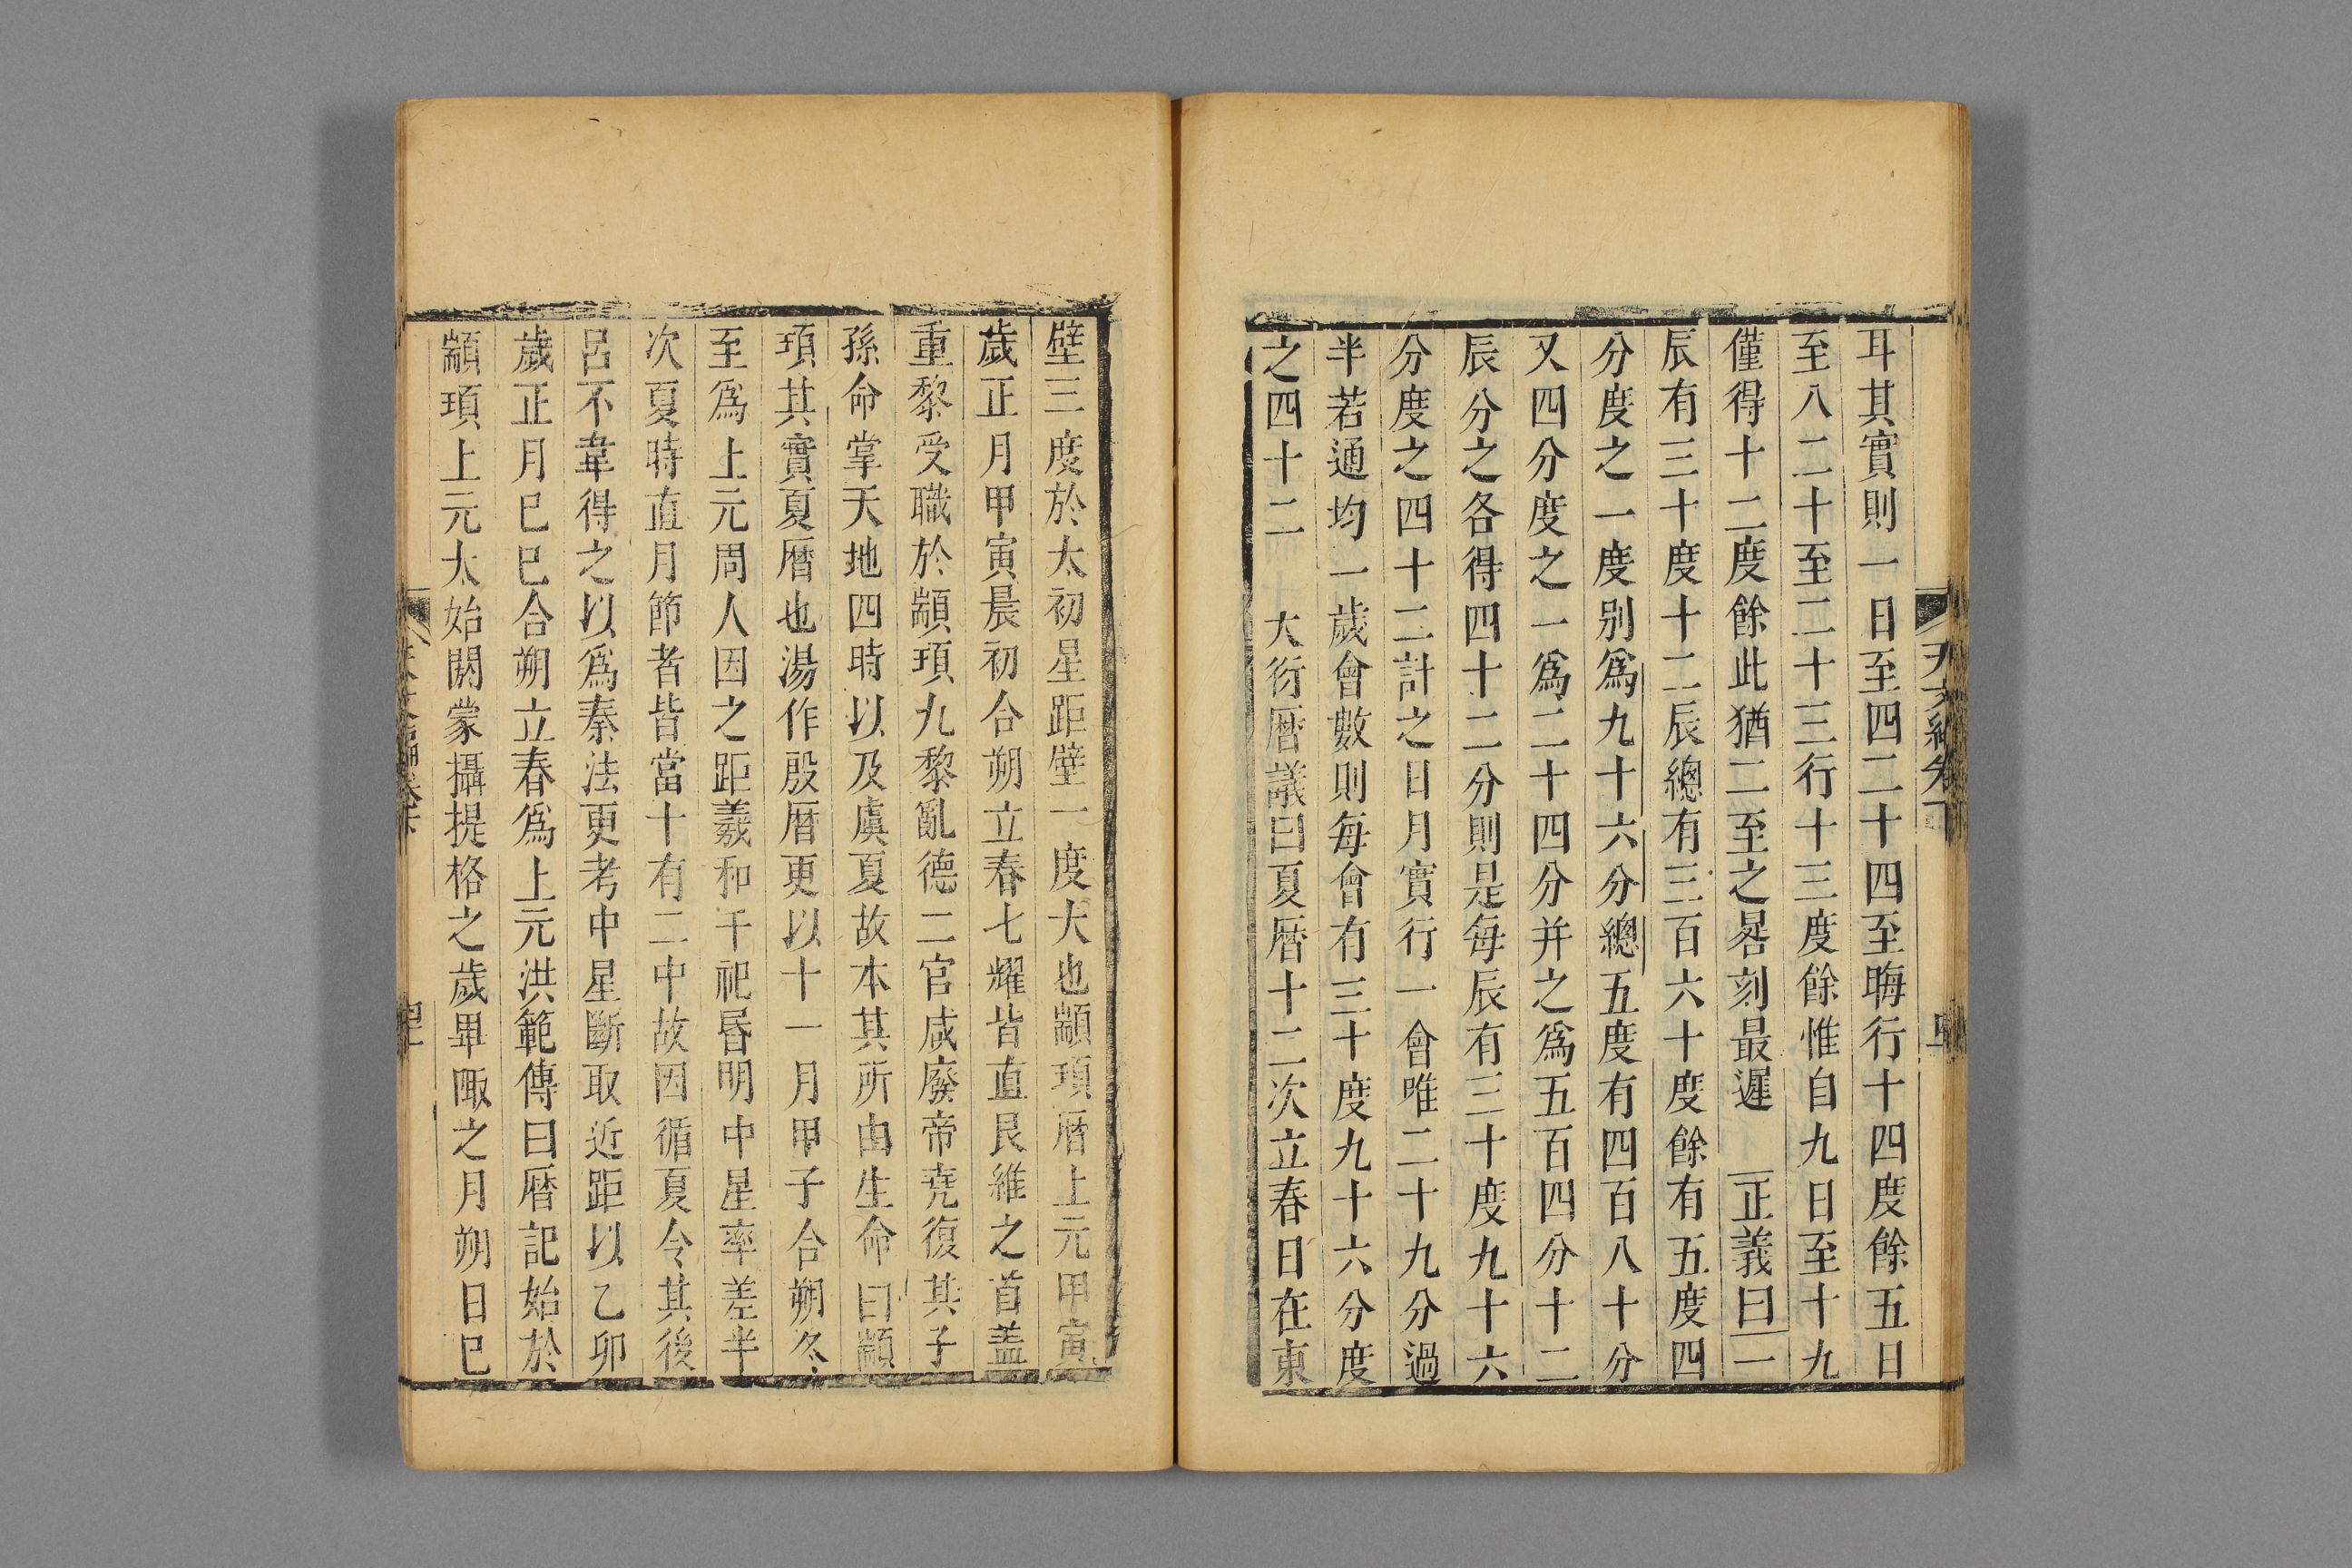 耳其實則一日至四二十四至晦行十四度餘五日
至八二十至二十三行十三度餘惟自九日至十九
僅得十二度餘此猶二至之晷刻最遲　正義曰一
辰有三十度十二辰總有三百六十度餘有五度四
分度之一度别爲九十六分總五度有四百八十分
又四分度之一爲二十四分并之爲五百四分十二
辰分之各得四十二分則是每辰有三十度九十六
分度之四十二計之日月實行一會唯二十九分過
半若通均一歲會數則每會有三十度九十六分度
之四十二　大衍曆議曰夏曆十二次立春日在東
壁三度於太初星距壁一度大也顓頊曆上元甲寅
歲正月甲寅晨初合朔立春七耀皆直艮維之首盖
重黎受職於顓頊九黎亂德二官咸廢帝尭復其子
孫命掌天地四時以及虞夏故本其所由生命曰顓
頊其實夏曆也湯作殷曆更以十一月甲子合朔冬
至爲上元周人因之距羲和千祀昏明中星率差半
次夏時直月節者皆當十有二中故因循夏令其後
呂不韋得之以爲秦法更考中星斷取近距以乙卯
歲正月己巳合朔立春爲上元洪範傳曰曆記始於
顓頊上元太始閼蒙攝提格之歲畢陬之月朔日己